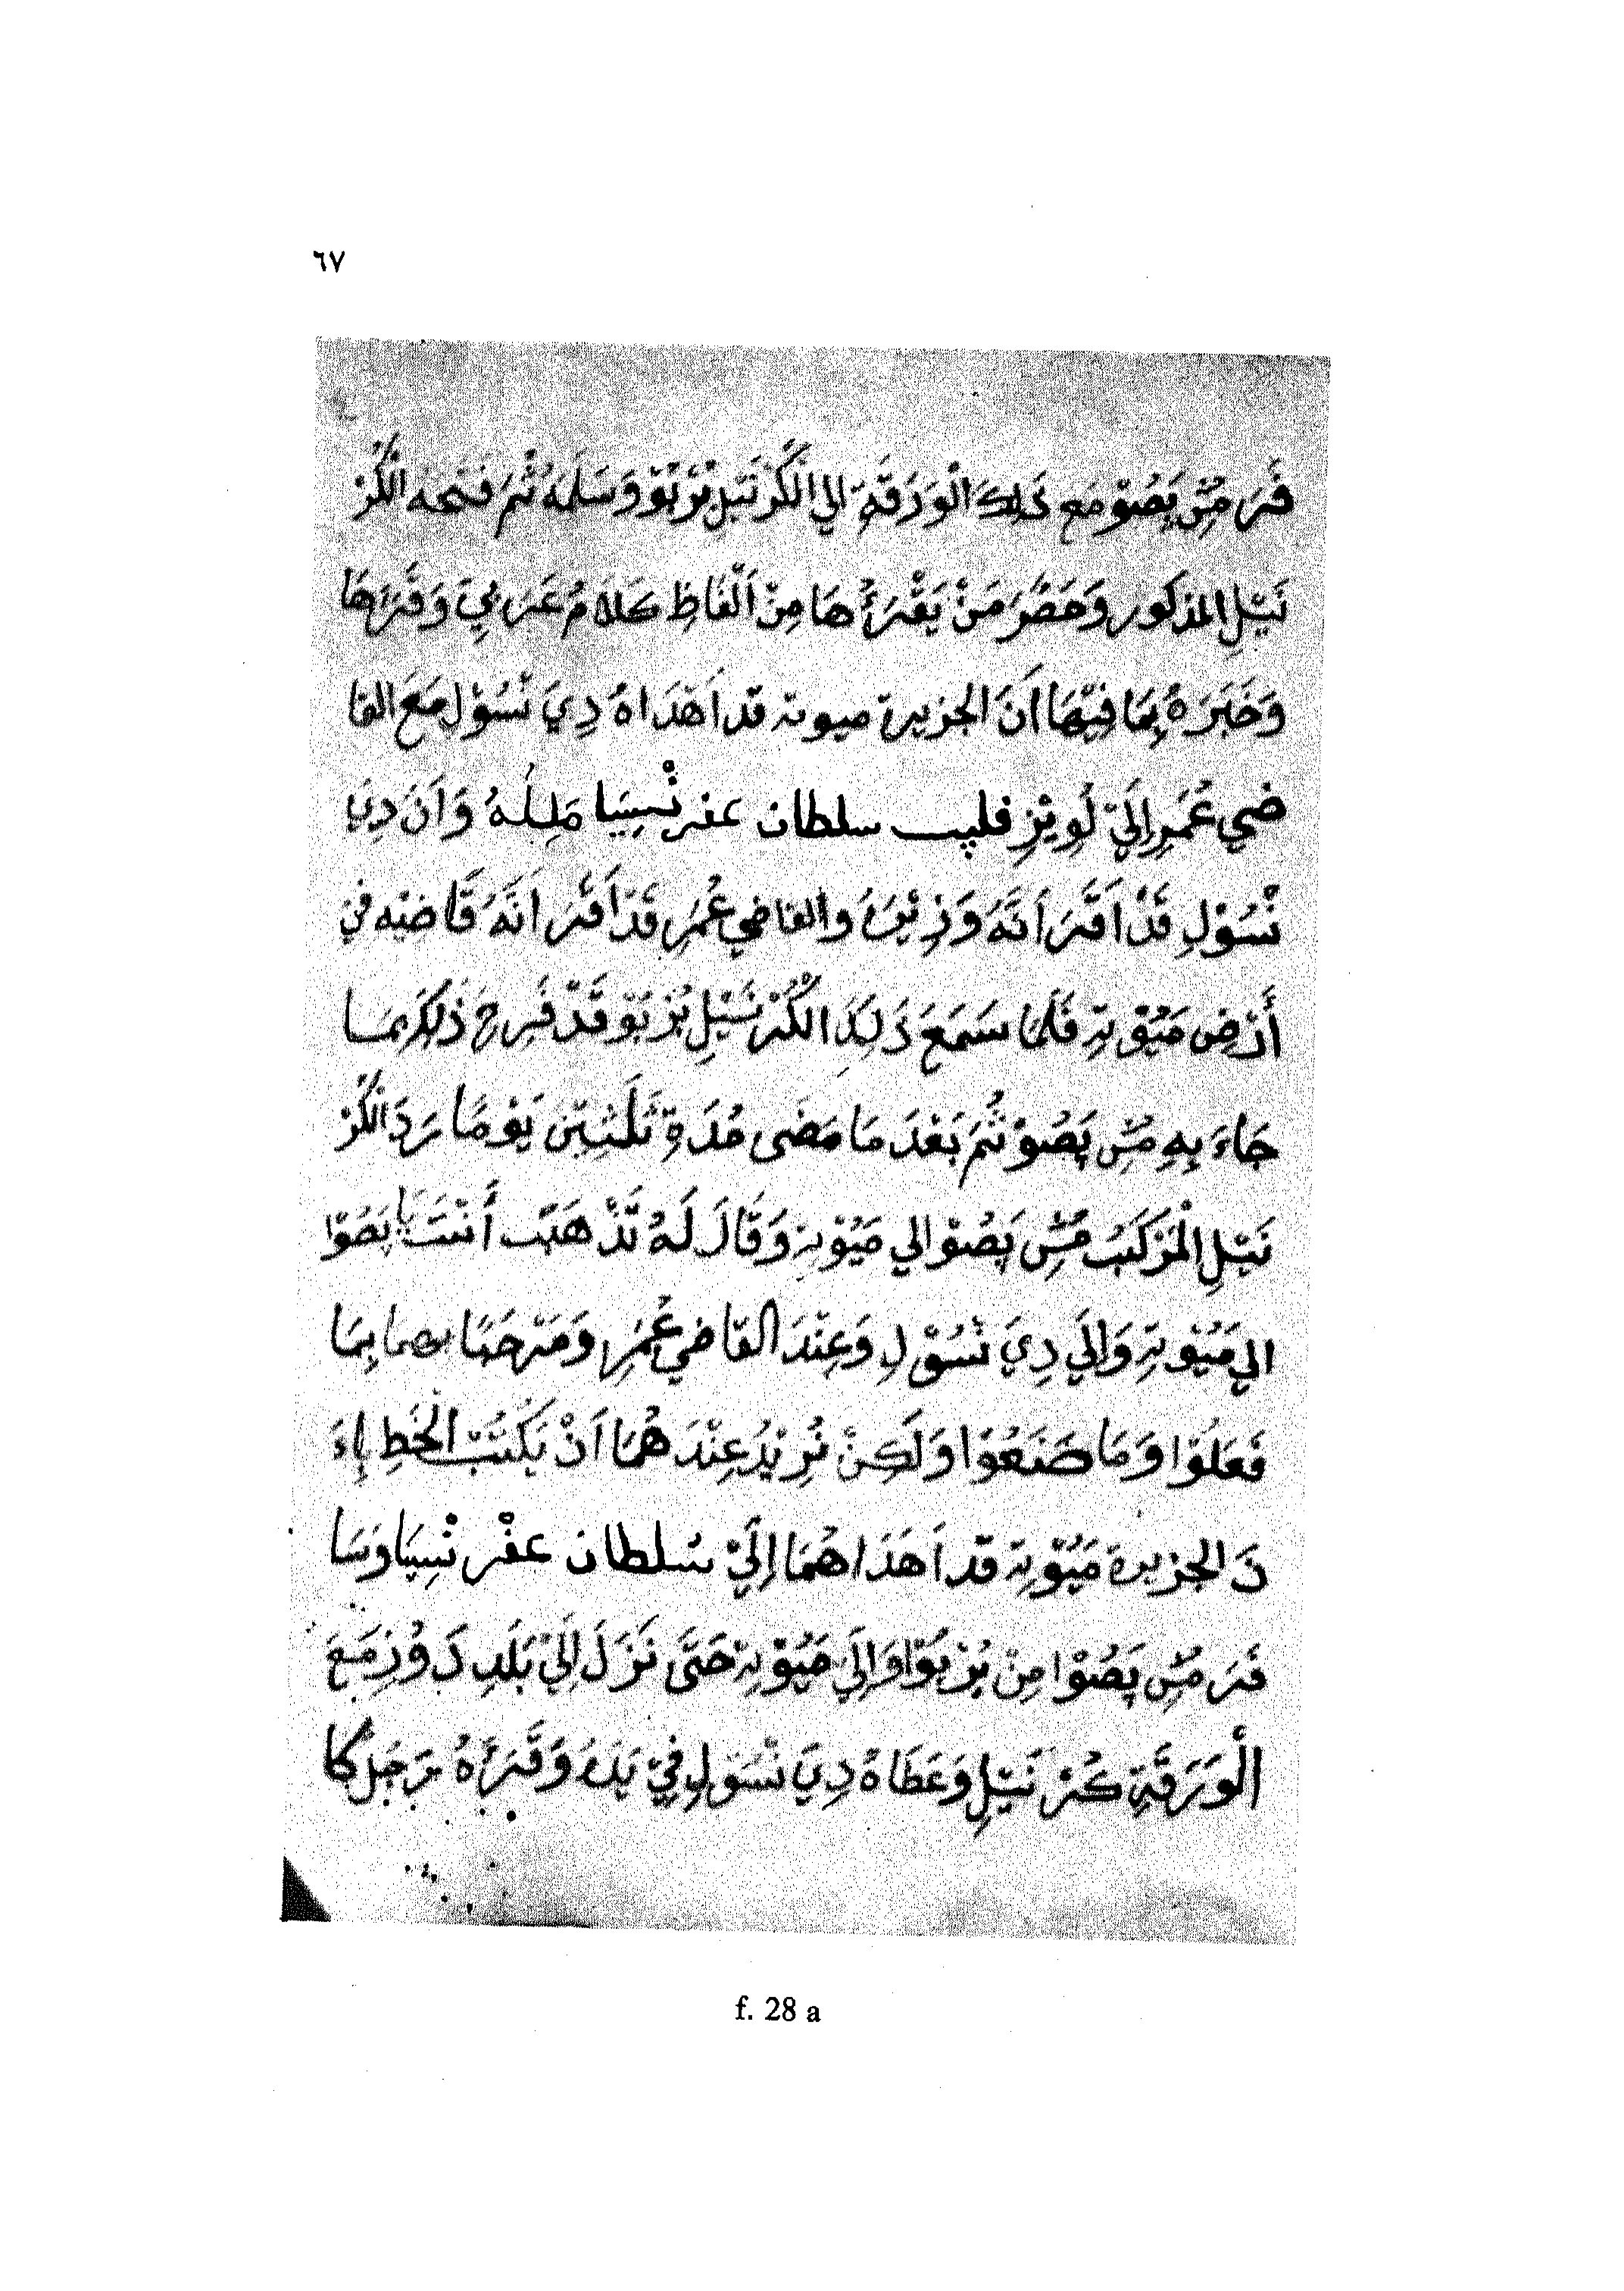 ٦٧
فَرَ مُسِ پَصُوْ مَع ذَلِكَ الْوَرَقَةِ الي الْكُرْنَيْلِ بُرْبُوْ وَسَلَّمَهُ ثُمَ فَتَحَهُ الْكُرْ
نَيْلِ المذكور وَحَضَرَ مَنْ يَقْرَأُهَا مِنْ اَلْفَاظِ كَلَامُ عَرَبِيِ وَقَرَءَهَا
وَخَبَرَهُ بِمَا فِيْهَا اَنَ الجزيرة ميوتة قد اَهْدَاهُ دِيَ نْسُوْلِ مَعَ القا
ضي عُمَرِ اِلَيْ لُوِيْزِ فليپ سلطان عفرنْسِيَا مَلِلُهُ وَاَنَ دِيَ
نْسُوْلِ قَدْ اَقَرَ اَنَّهُ وَزِيْرُهُ والقاضي عُمَرِ قَدْ اَقَرَ اَنَّهُ قَاضِيْه في
أَرْضِ مَيُوْتةِ فَلَمَا سَمَعَ ذَلِكَ الكُرْنَيْلِ بُرْبَوْ قَدْ فَرِحَ ذَلِكَ بِمَا
جَاءَ بِهِ مُسِ پَصُوْ ثُمَ بَعْدَ مَا مَضَى مُدَةِ ثَلَثِيْنَ يَوْمًا رَدَ الْكُرْ
نَيْلِ الْمَرْكَبُ مُسِ پَصُوْ الي مَيُوْتة وَقَالَ لَهُ تَذْهَبْ أَنْتَ يَا پَصُوْا
الي مَيُوْتةِ وَاِلَي دِيَ نْسُوْلِ وَعِنْدَ القاضي عُمَرِ وَمَرْحَبًا بهما بِمَا
فَعَلُوْا وَمَا صَنَعُوْا وَلَكِنْ نُرِيْدُ عِنْدَهُمَا اَنْ يَكْتُبْ الْخَطِ بِاءَ
نَ الجزيرة مَيُوْتِة قد اَهْدَاهُمَا اِلَيْ سُلطان عفْرنْسِيَا وَسَا
فَرَ مُسِ پَصُوْا مِنْ بُرْبَوْا وَاِلَي مَيُوْتِة حَتَى نَزَلَ اِلَيْ بَلَدِ دَوُزِ مَعَ
الْوَرَقَةِ كُرْنَيْلِ وَعَطَاهُ دِيَ نْسُوْلِ فِيْ يَدِهُ وَقَرَءَهُ رَجُلُ كَا
f. 28 a